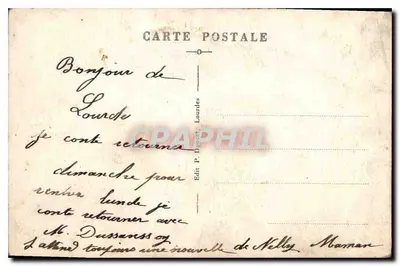 CARTE POSTALE
Bonjour de
Lourde
je conte retourner
dimanche pour
rentrer lundi je
conte retourner avec
M. Dussanssoy
J'attend toujours une nouvelle de Nelly Maman
Edit P. Lourdes
CARTEPHILA